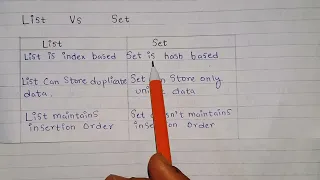 List Vs Set
List Set
List is index based Set is hash based
List Can Store duplicate Set Store only
data. data
List maintains Set maintains
insertion Order insertion Order